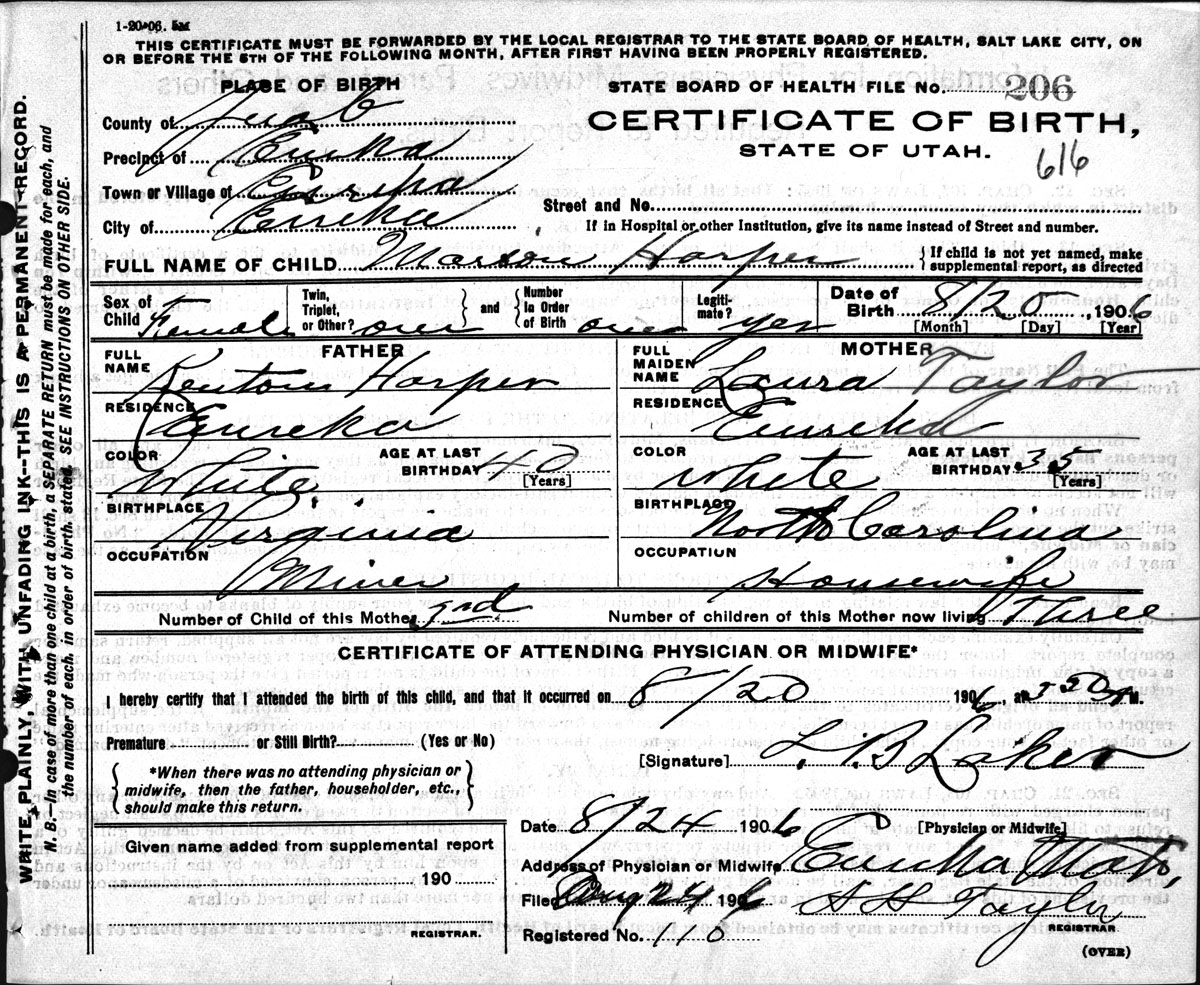 1-20-06. 5M
THIS CERTIFICATE MUST BE FORWARDED BY THE LOCAL REGISTRAR TO THE STATE BOARD OF HEALTH, SALT LAKE CITY, ON
OR BEFORE THE 5TH OF THE FOLLOWING MONTH, AFTER FIRST HAVING BEEN PROPERLY REGISTERED.
PLACE OF BIRTH
STATE BOARD OF HEALTH FILE No. 206
County of Juab
CERTIFICATE OF BIRTH,
STATE OF UTAH.
616
Precinct of Eureka
Town or Village of Eureka
City of Eureka
Street and No.
If in Hospital or other Institution, give its name instead of Street and number.
FULL NAME OF CHILD Marion Harper { If child is not yet named, make
supplemental report, as directed
Sex of Child Female
Twin, Triplet, or Other? one } and { Number in Order of Birth one
Legitimate? yes
Date of Birth 8/20, 1906
[Month] [Day] [Year]
FATHER
FULL NAME Kenton Harper
RESIDENCE Eureka
COLOR White
AGE AT LAST BIRTHDAY 40 [Years]
BIRTHPLACE Virginia
OCCUPATION Miner
MOTHER
FULL MAIDEN NAME Laura Taylor
RESIDENCE Eureka
COLOR White
AGE AT LAST BIRTHDAY 35 [Years]
BIRTHPLACE North Carolina
OCCUPATION Housewife
Number of Child of this Mother 3rd
Number of children of this Mother now living Three
CERTIFICATE OF ATTENDING PHYSICIAN OR MIDWIFE*
I hereby certify that I attended the birth of this child, and that it occurred on 8/20 1906, at M.
Premature or Still Birth? (Yes or No)
{ *When there was no attending physician or
midwife, then the father, householder, etc.,
should make this return. }
[Signature]
[Physician or Midwife]
Date 8/24 1906
Given name added from supplemental report
190
REGISTRAR.
Address of Physician or Midwife Eureka Utah,
Filed Aug 24 1906 Taylor
REGISTRAR
Registered No. 110
(OVER)
WRITE PLAINLY WITH UNFADING INK--THIS IS A PERMANENT RECORD.
N. B.—In case of more than one child at a birth, a SEPARATE RETURN must be made for each, and
the number of each, in order of birth, stated. SEE INSTRUCTIONS ON OTHER SIDE.